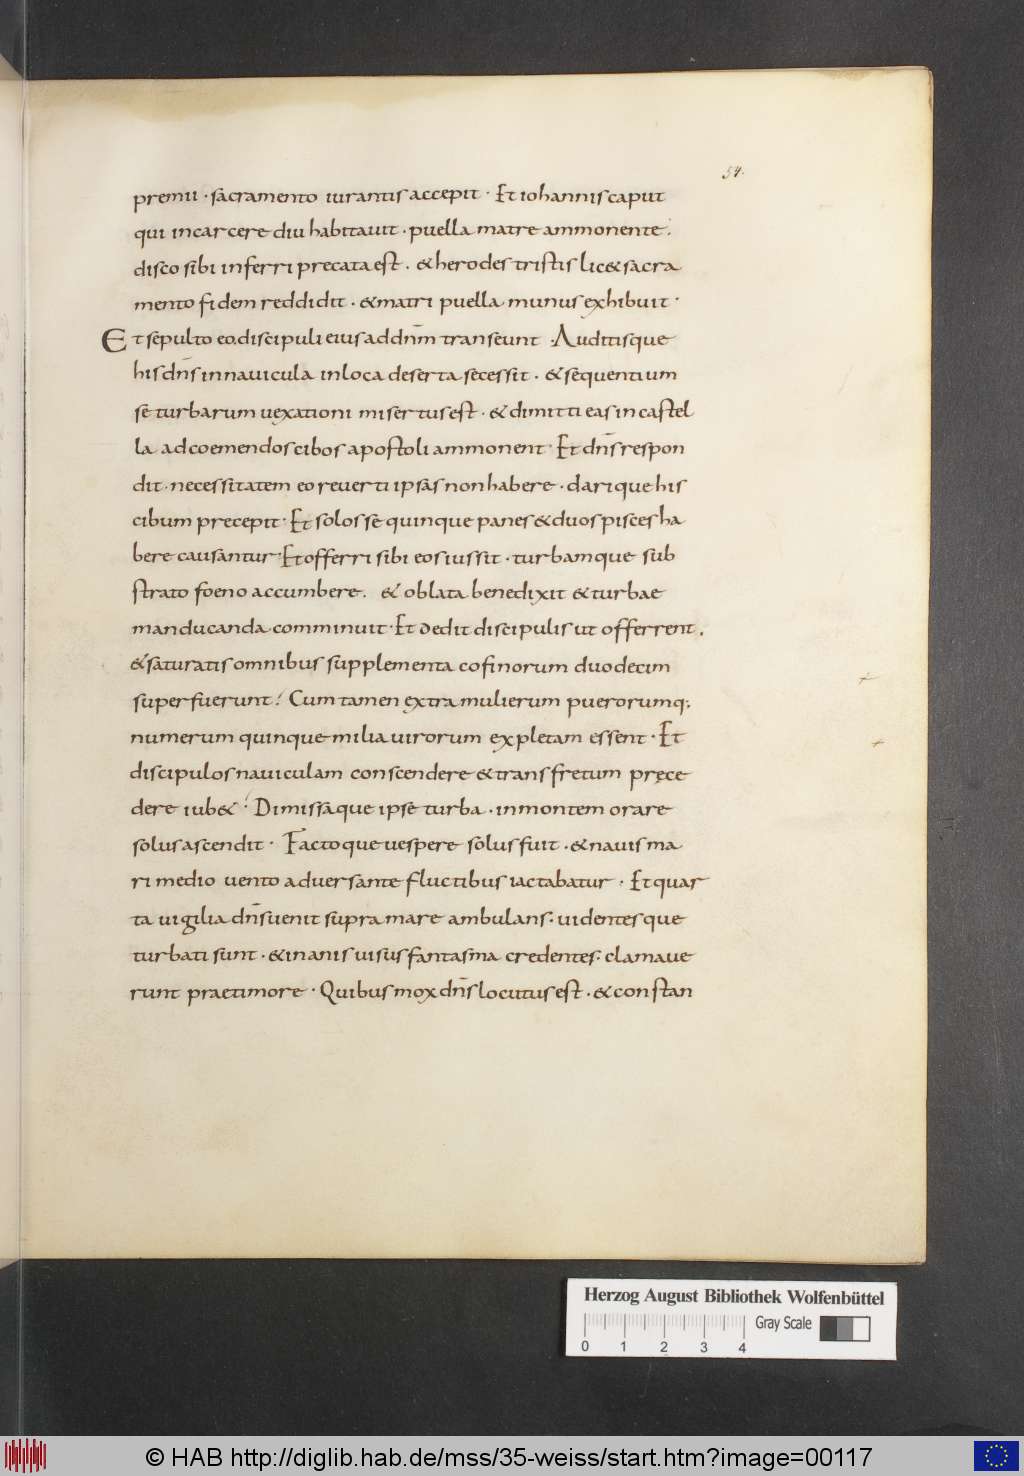 54.
premii · sacramento iurantis accepit · Et iohannis caput
qui incarcere diu habitauit · puella matre ammonente .
disco sibi inferri precata est . & herodes tristis lic& sacra
mento fidem reddidit . & matri puella munus exhibuit ·
Et sepulto eo. discipuli eius ad dnm̄ transeunt · Auditisque
his dn̄s in nauicula in loca deserta secessit . & sequentium
se turbarum uexationi misertus est . & dimitti eas in castel
la ad coemendos cibos apostoli ammonent · Et dn̄s respon
dit · necessitatem eo reuerti ipsas non habere . darique his
cibum precepit · Et solos se quinque panes & duos pisces ha
bere causantur · Et offerri sibi eos iussit · turbamque sub
strato foeno accumbere . & oblata benedixit & turbae
manducanda comminuit · Et dedit discipulis ut offerrent .
& saturatis omnibus supplementa cofinorum duodecim
superfuerunt ; Cum tamen extra mulierum puerorumq;
numerum quinque milia uirorum expletam essent · Et
discipulos nauiculam conscendere & transfretum pręce
dere iub& · Dimissaque ipse turba . in montem orare
solus ascendit · Facto que uespere solus fuit . & nauis ma
ri medio uento aduersante fluctibus iactabatur · Et quar
ta uigilia dn̄s uenit supra mare ambulans · uidentesque
turbati sunt · & inanis uisus fantasma credentes · clamaue
runt prae timore · Quibus mox dn̄s locutus est . & constan
Herzog August Bibliothek Wolfenbüttel
Gray Scale
0 1 2 3 4
© HAB http://diglib.hab.de/mss/35-weiss/start.htm?image=00117